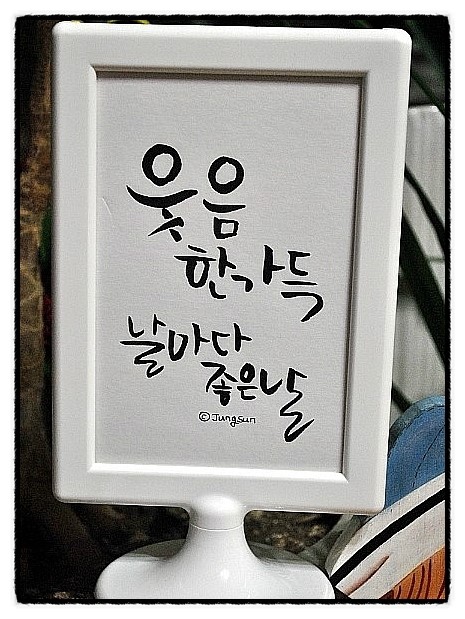 웃음
한가득
날마다
좋은날
© Jungsun